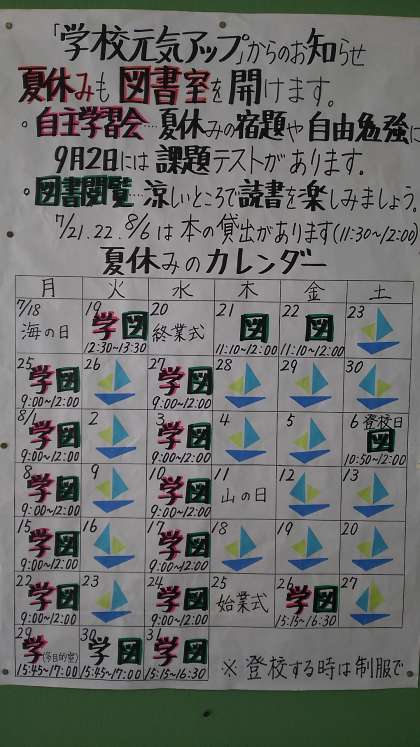 「学校元気アップ」からのお知らせ
夏休みも図書室を開けます。
。自主学習会…夏休みの宿題や自由勉強に
9月2日には課題テストがあります。
。図書閲覧…涼しいところで読書を楽しみましょう。
7/21.22.8/6は本の貸出があります(11:30~12:00)
夏休みのカレンダー
月 火 水 木 金 土
7/18 19 20 21 22 23
海の日 学図 終業式 図 図
12:30~13:30 11:10~12:00 11:10~12:00
25 26 27 28 29 30
学図 学図
9:00~12:00 9:00~12:00
8/1 2 3 4 5 6 登校日
学図 学図 図
9:00~12:00 9:00~12:00 10:50~12:00
8 9 10 11 12 13
学図 学図 山の日
9:00~12:00 9:00~12:00
15 16 17 18 19 20
学図 学図
9:00~12:00 9:00~12:00
22 23 24 25 26 27
学図 学図 始業式 学図
9:00~12:00 9:00~12:00 15:15~16:30
29 30 31
学(多目的室) 学図 学図
15:45~17:00 15:45~17:00 15:15~16:30
※登校する時は制服で